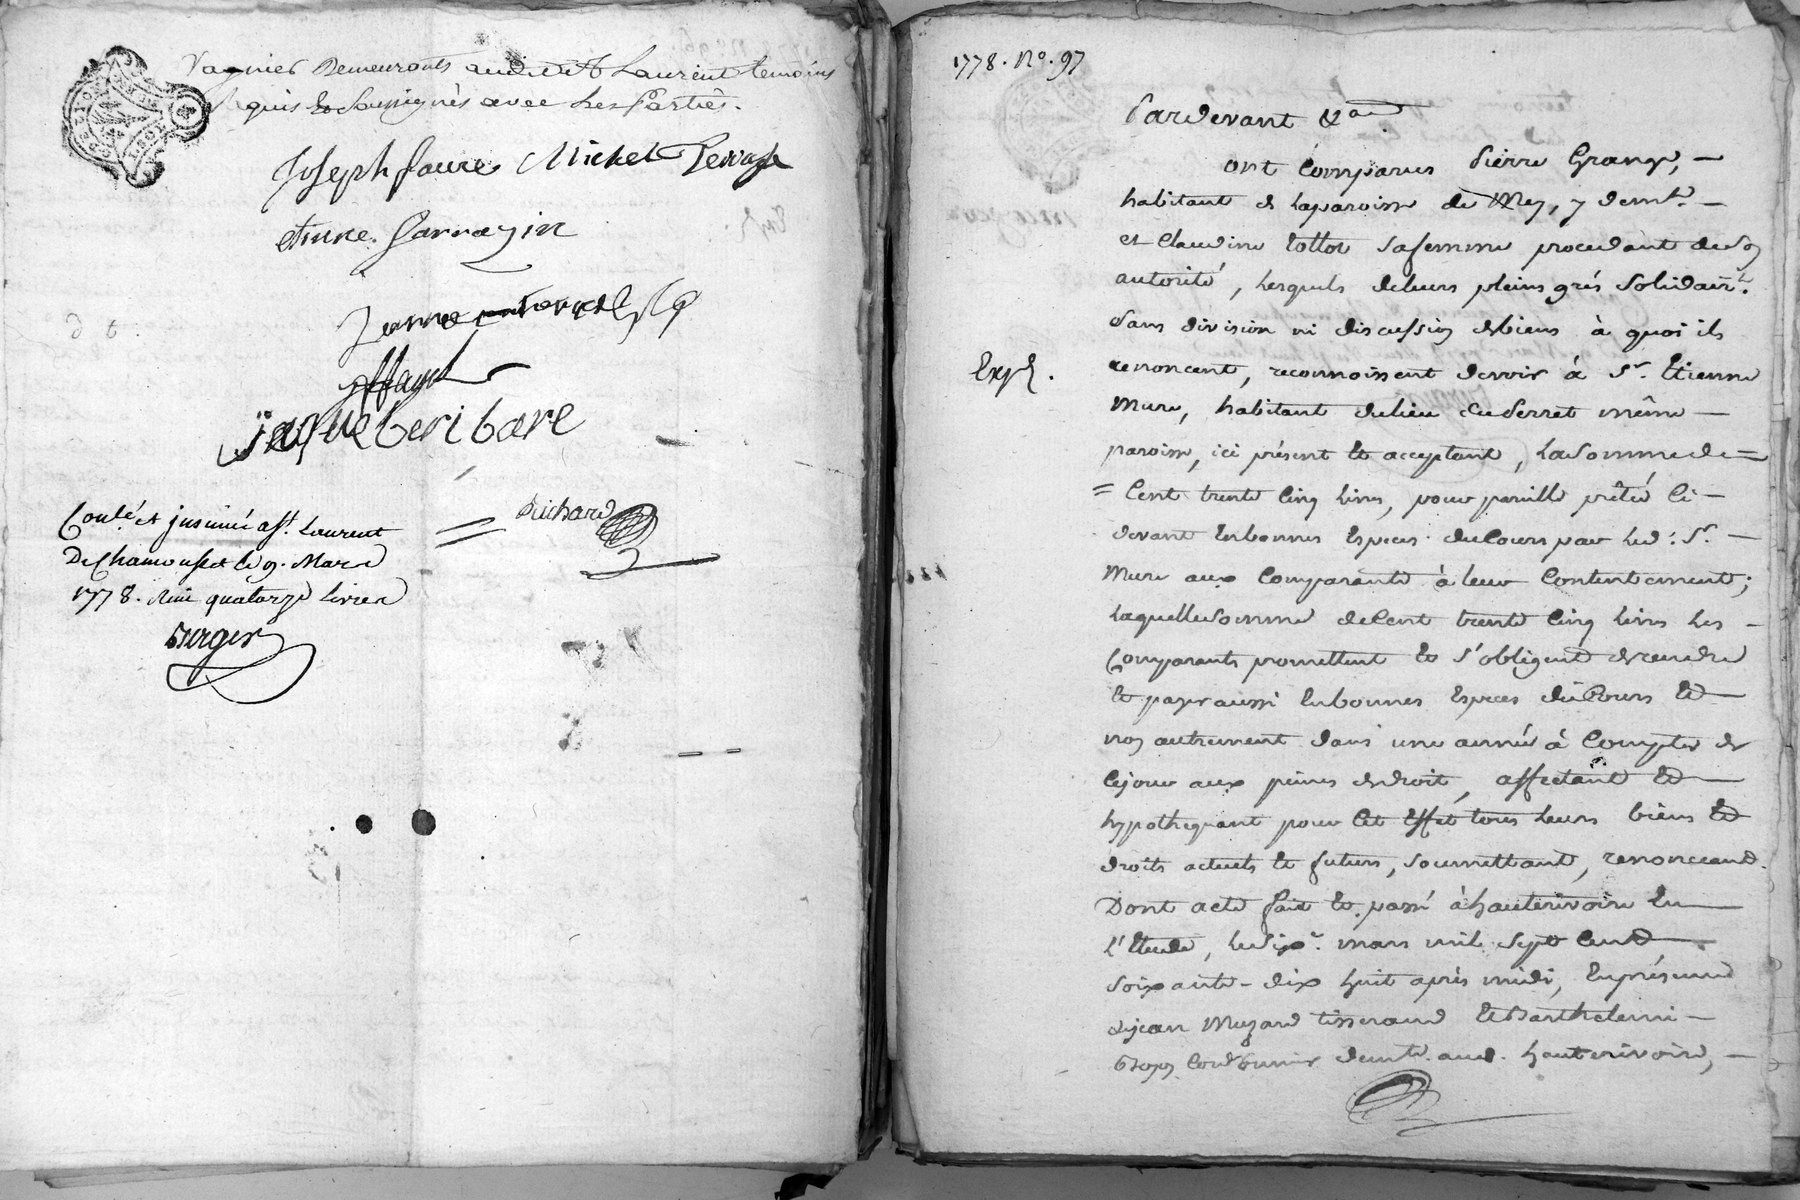 Vagnier Demeurants audit St Laurent temoins
requis & soussignés avec les Parties.
Joseph faure Michel
etiene Sarrazin
Jeanne
jaque beribare
Richard
Conlé et jnsinué a St. Laurent
De Chamousset le 9. Mars
1778. Reçu quatorze livres
Berger
1778. No. 97
Pardevant &a
ont Comparus Pierre Grange, —
habitant de la paroisse de Mey, y demt. —
et Claudine sa femme procedant de son
autorité, lesquels de leurs pleins grés solidairt.
sans division ni discussion de biens à quoi ils
Exp.
renoncent, reconnoissent devoir à Sr. Etienne
Mure, habitant du lieu du Serret même —
paroisse, ici présent et acceptant, la somme de =
= Cent trente Cinq livres, pour pareille prêtée Ci —
devant En bonnes Especes du Cours par led: Sr. —
Mure aux Comparants à leur Contentement;
laquelle somme de Cent trente Cinq livres les —
Comparants promettent et s'obligent de rendre
et payer aussi En bonnes Especes du Cours et —
non autrement dans une année à Compter de
Ce jour aux peines de droit, affectant et —
hypothequant pour Cet Effet tous leurs biens et
droits actuels et futurs, soumettant, renonceant.
Dont acte fait et passé à hauterivoire En —
l'Etude, le six. mars mil sept Cent —
soixante-dix huit après midi, En présence
de jean Muzard tisserand et Barthelemi —
Cordonnier demt. aud. hauterivoire, —